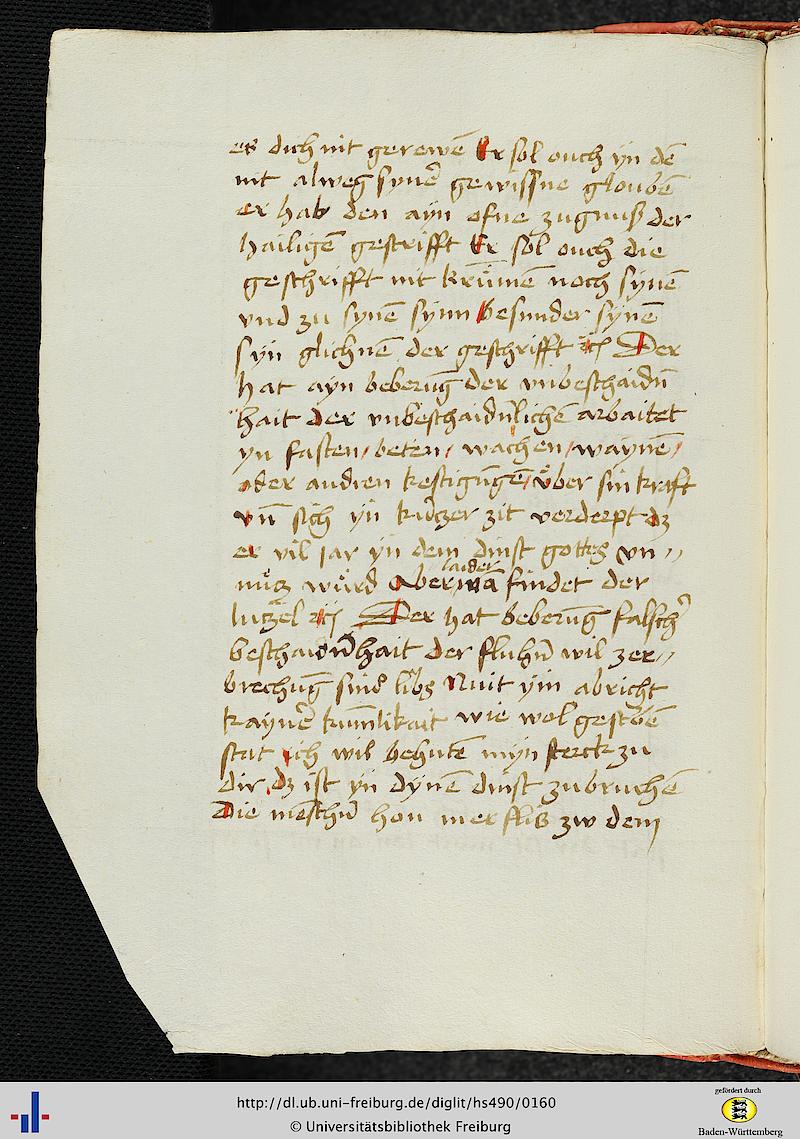 es dich nit gerewē Er sol ouch yn dē
nit alweg synē gewissne gloubē
er hab den ayn ofne zugnuß der
hailigē gestrifft Er sol ouch die
geschrifft nit krūmē noch synē
vnd zu synē synn besunder synē
syn glichnē der geschrifft Der
hat ayn beberūg der vnbeschaidn̄
hait der vnbeschaidn̄lichē arbaitet
yn fasten / beten / wachen / waynē /
oder andren kestigūgē / v̈ber sin kraft
vn̄ sich yn kurczer zit verderpt dz
er vil jar yn dem dinst gottes vn〃
nücz würd Aber laider mā findet der
luczel Der hat beberūg falscher
beschaidn̄hait der fluhn̄ wil zer〃
brechūg sinß libs Nuit ym abricht
kaynē kum̄likait wie wol gestbē
stat ich wil behutē myn sterck zu
dir dz ist yn dynē dinst zubruchē
Die menschn̄ hon mer fliß zw dem
http://dl.ub.uni-freiburg.de/diglit/hs490/0160
© Universitätsbibliothek Freiburg
gefördert durch
Baden-Württemberg